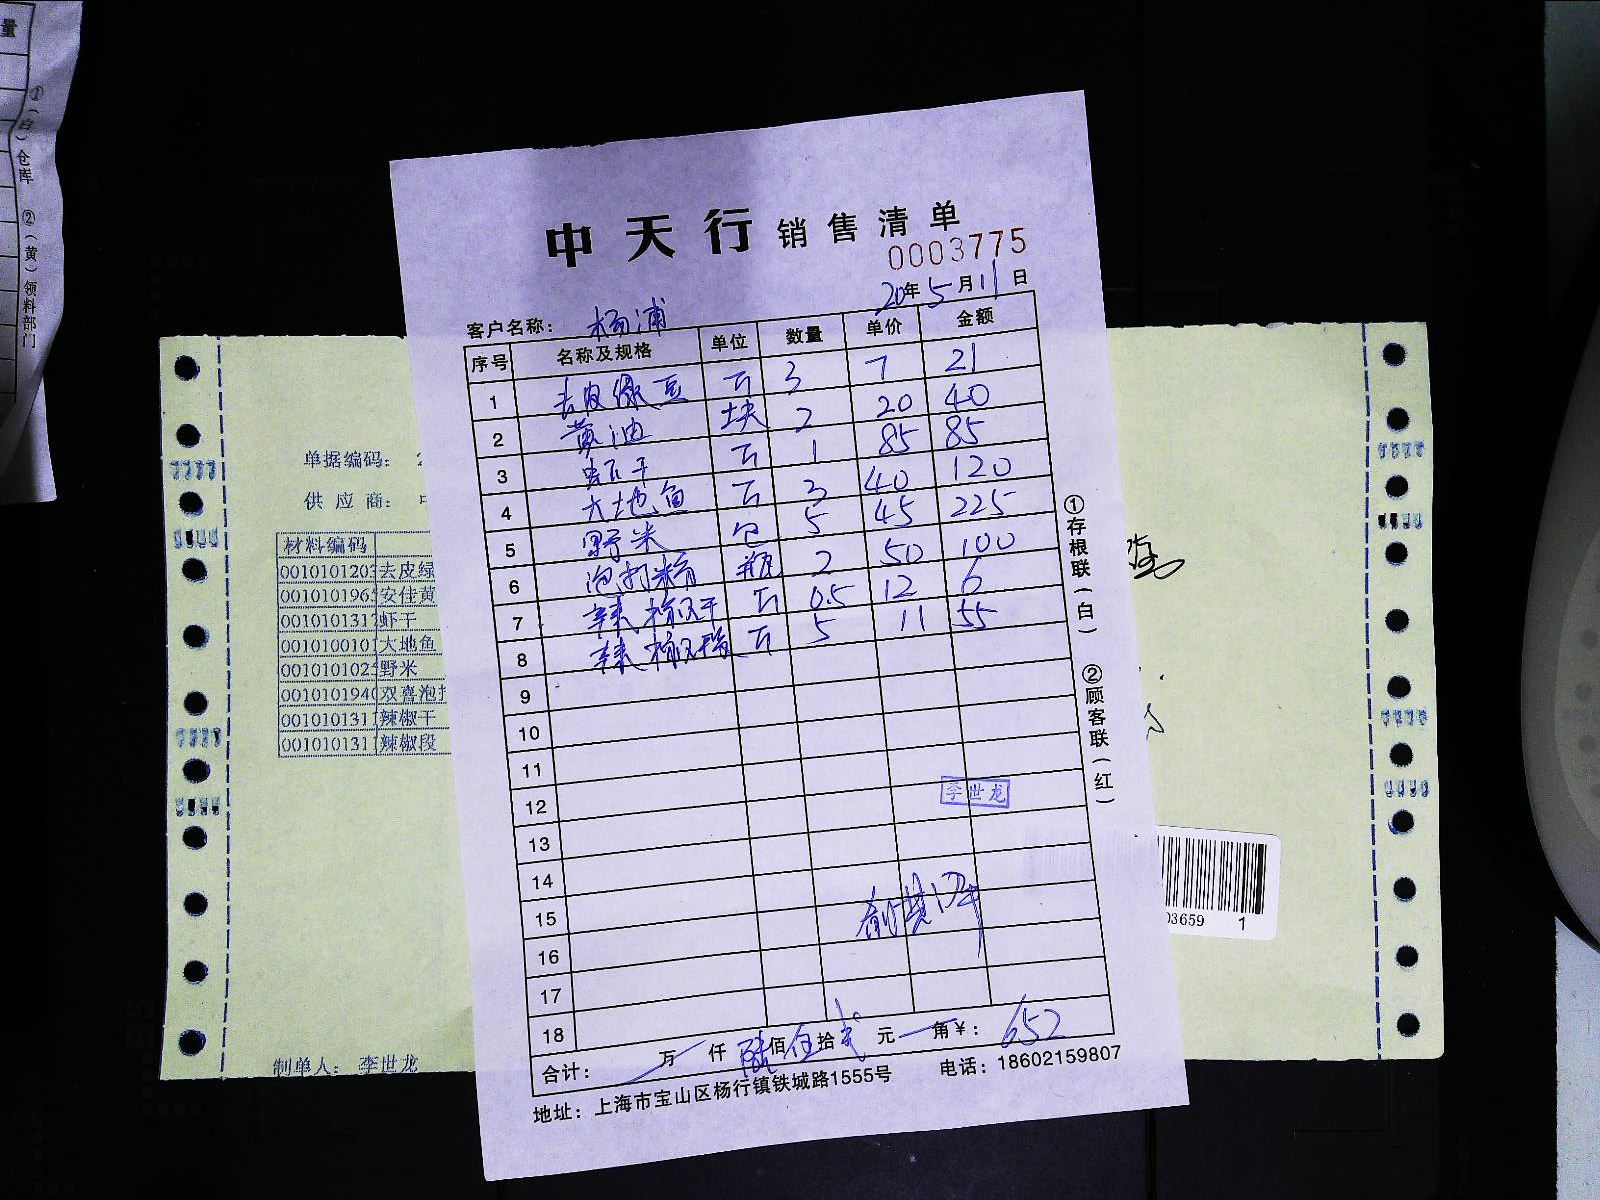 量
①(白)仓库 ②(黄)领料部门
中天行 销售清单
0003775
20年5月11日
客户名称: 杨浦
序号 名称及规格 单位 数量 单价 金额
1 去皮绿豆 斤 3 7 21
2 黄油 块 2 20 40
3 虾干 斤 1 85 85
4 大地鱼 斤 3 40 120
5 野米 包 5 45 225
6 泡打粉 瓶 2 50 100
7 辣椒干 斤 0.5 12 6
8 辣椒段 斤 5 11 55
9
10
11
12
13
14
15
16
17
18
李世龙
合计: 万 仟 陆佰伍拾贰元 角 ¥: 652
地址: 上海市宝山区杨行镇铁城路1555号 电话: 18602159807
①存根联(白) ②顾客联(红)
单据编码: 2
供应商: 中
材料编码
0010101203 去皮绿
001010196 安佳黄
001010131 虾干
001010010 大地鱼
001010102 野米
001010194 双喜泡打
001010131 辣椒干
001010131 辣椒段
制单人: 李世龙
03659 1